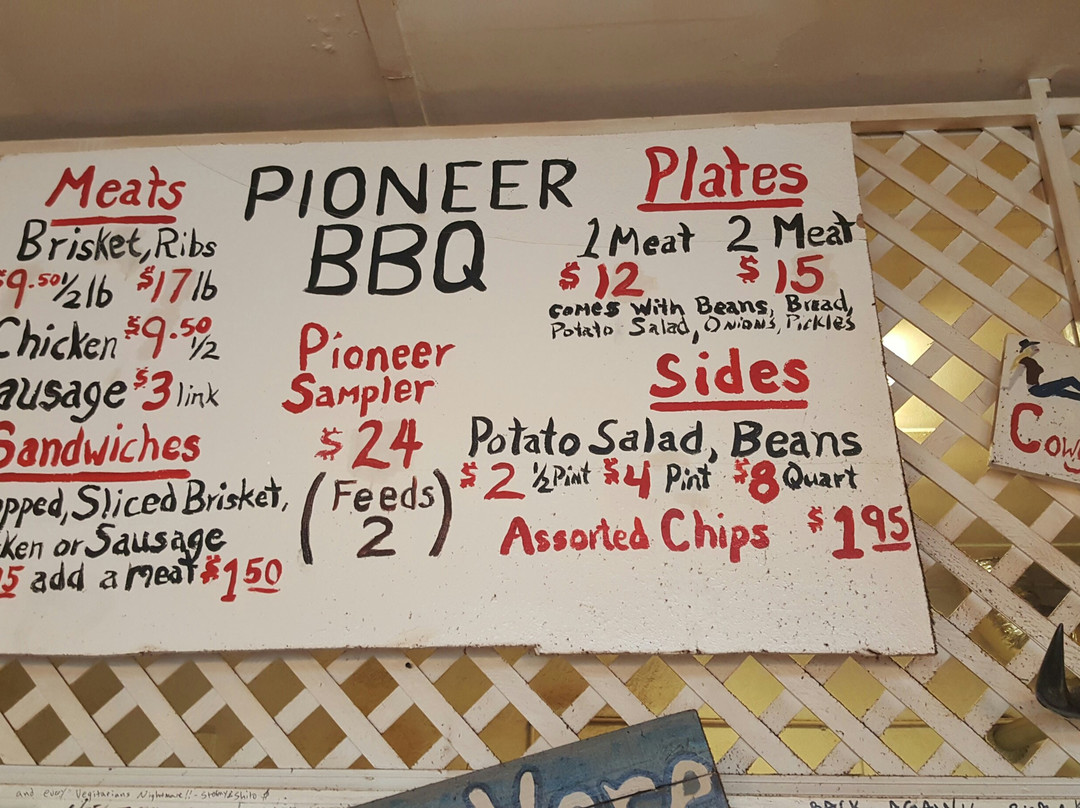 Meats
Brisket, Ribs
$9.50 1/2 lb $17 lb
Chicken $9.50 1/2
ausage $3 link
Sandwiches
pped, Sliced Brisket,
ken or Sausage
5 add a meat $1 50
PIONEER
BBQ
Pioneer
Sampler
$24
(Feeds
2)
Plates
1 Meat 2 Meat
$12 $15
comes with Beans, Bread,
Potato Salad, Onions, Pickles
Sides
Potato Salad, Beans
$2 1/2 Pint $4 Pint $8 Quart
Assorted Chips $1 95
Cow
and every Vegitarians Nightmare!!